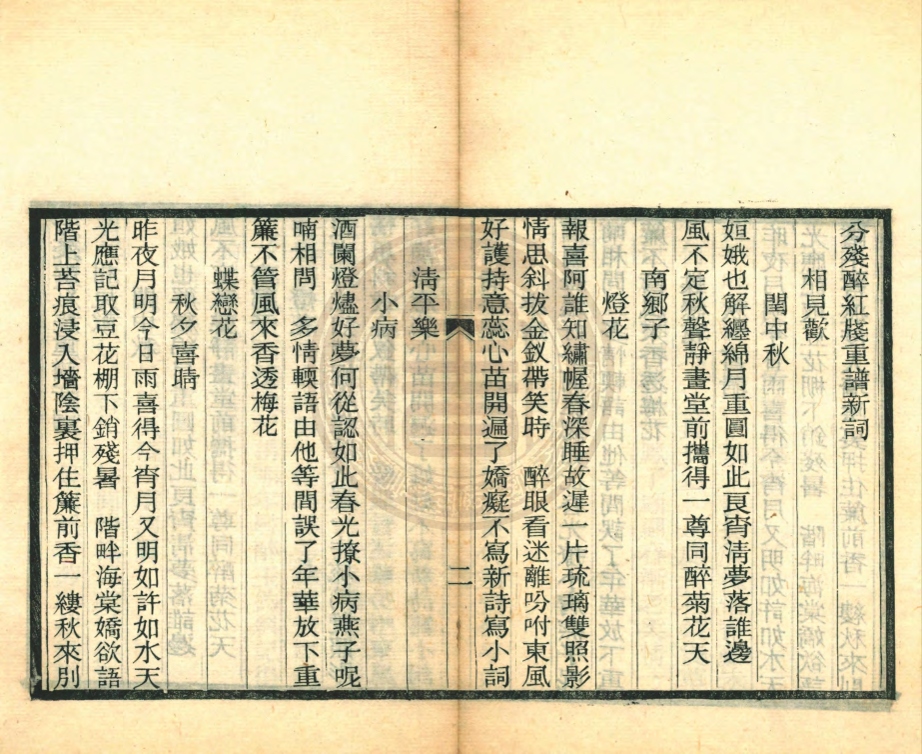 分殘醉紅牋重譜新詞
相見歡
閏中秋
姮娥也解纏綿月重圓如此良宵淸夢落誰邊
風不定秋聲靜畫堂前攜得一尊同醉菊花天
南鄉子
燈花
報喜阿誰知繡幄春深睡故遲一片琉璃雙照影
情思斜拔金釵帶笑時　醉眼看迷離吩咐東風
好護持意蕊心苗開遍了嬌癡不寫新詩寫小詞
二
淸平樂
小病
酒闌燈燼好夢何從認如此春光撩小病燕子呢
喃相問　多情輭語由他等閒誤了年華放下重
簾不管風來香透梅花
蝶戀花
秋夕喜晴
昨夜月明今日雨喜得今宵月又明如許如水天
光應記取豆花棚下銷殘暑　階畔海棠嬌欲語
階上苔痕浸入墻陰裏押住簾前香一縷秋來別